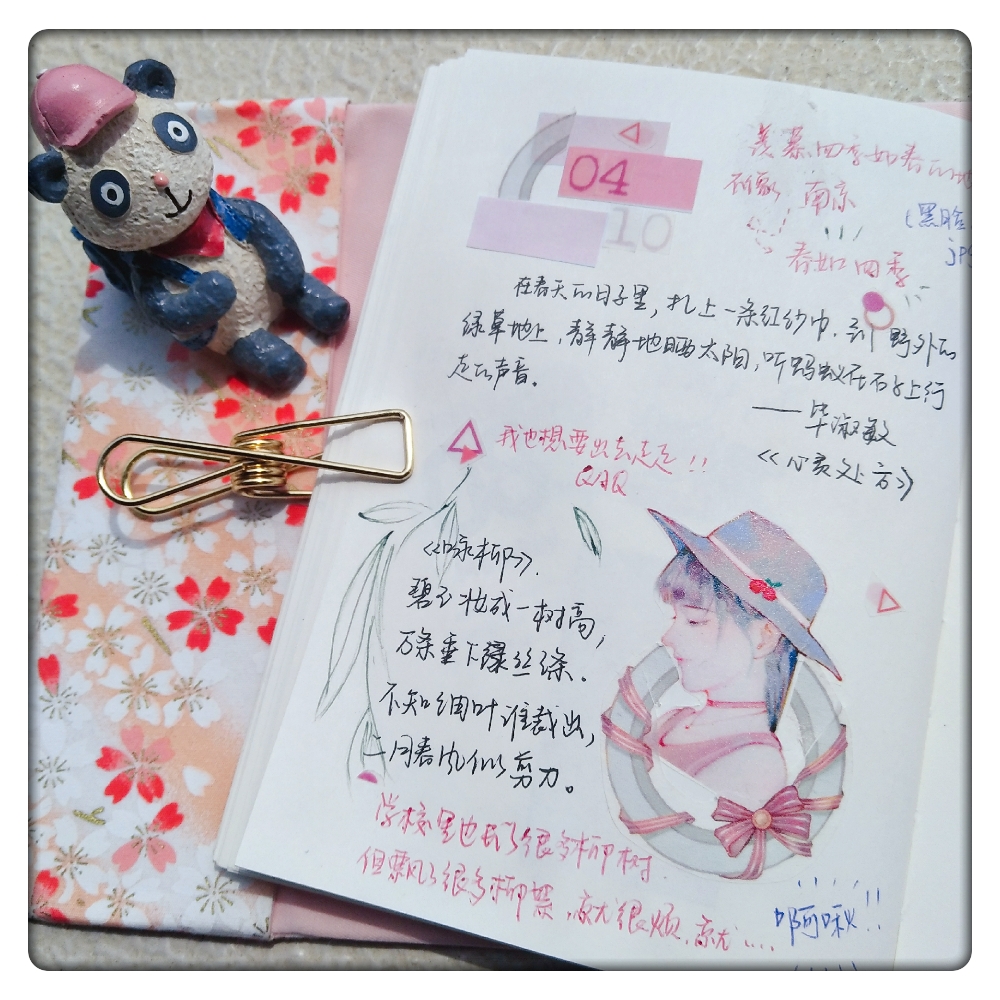 04
10
羡慕四季如春的地
不像 南京
(黑脸
jpg
春如四季
在春天的日子里，扎上一条红纱巾，到野外的
绿草地上，静静地晒太阳，听蚂蚁在石子上行
走的声音。
——毕淑敏
《心灵处方》
我也想要出去走走!!
QAQ
《咏柳》.
碧玉妆成一树高，
万条垂下绿丝绦.
不知细叶谁裁出，
二月春风似剪刀。
学校里也有了很多柳树.
但飘了很多柳絮，就很烦，就....
啊啾!!